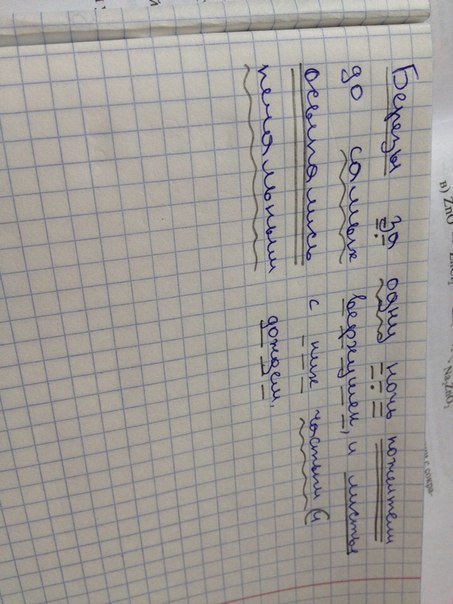 Березы за одну ночь пожелтели
до самых верхушек, и листья
осыпались с них частым и
печальным дождем.
в) ZnO